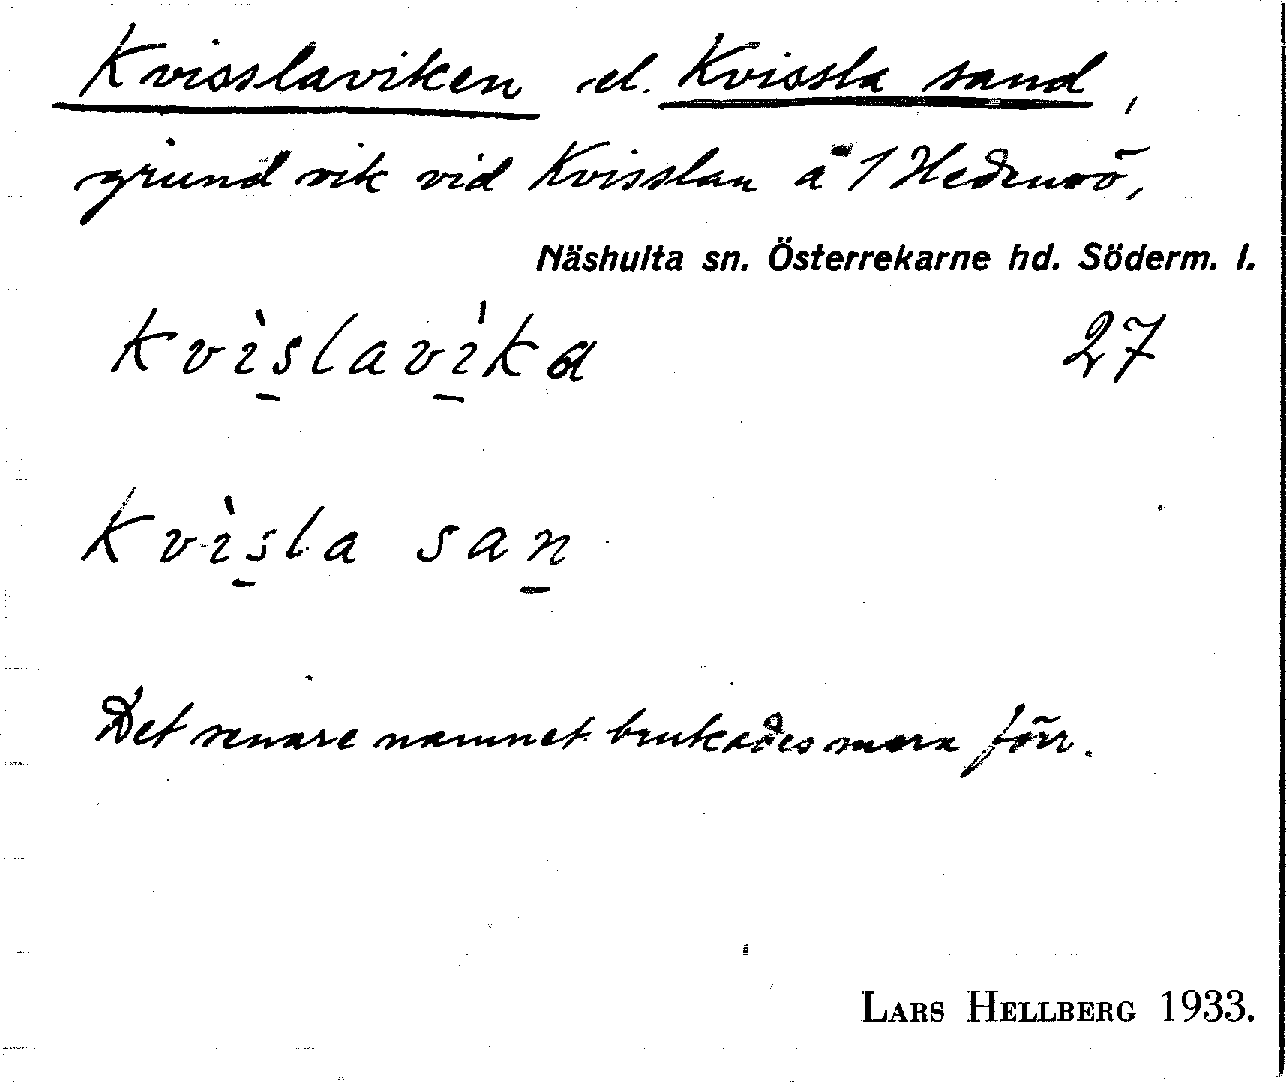 Kvisslaviken el. Kvissla sand,
grund vik vid Kvisslan å 1 Hedensö,
Näshulta sn. Österrekarne hd. Söderm. l.
kvìslavìka 27
kvìsla san
Det senare namnet brukades mera förr.
LARS HELLBERG 1933.